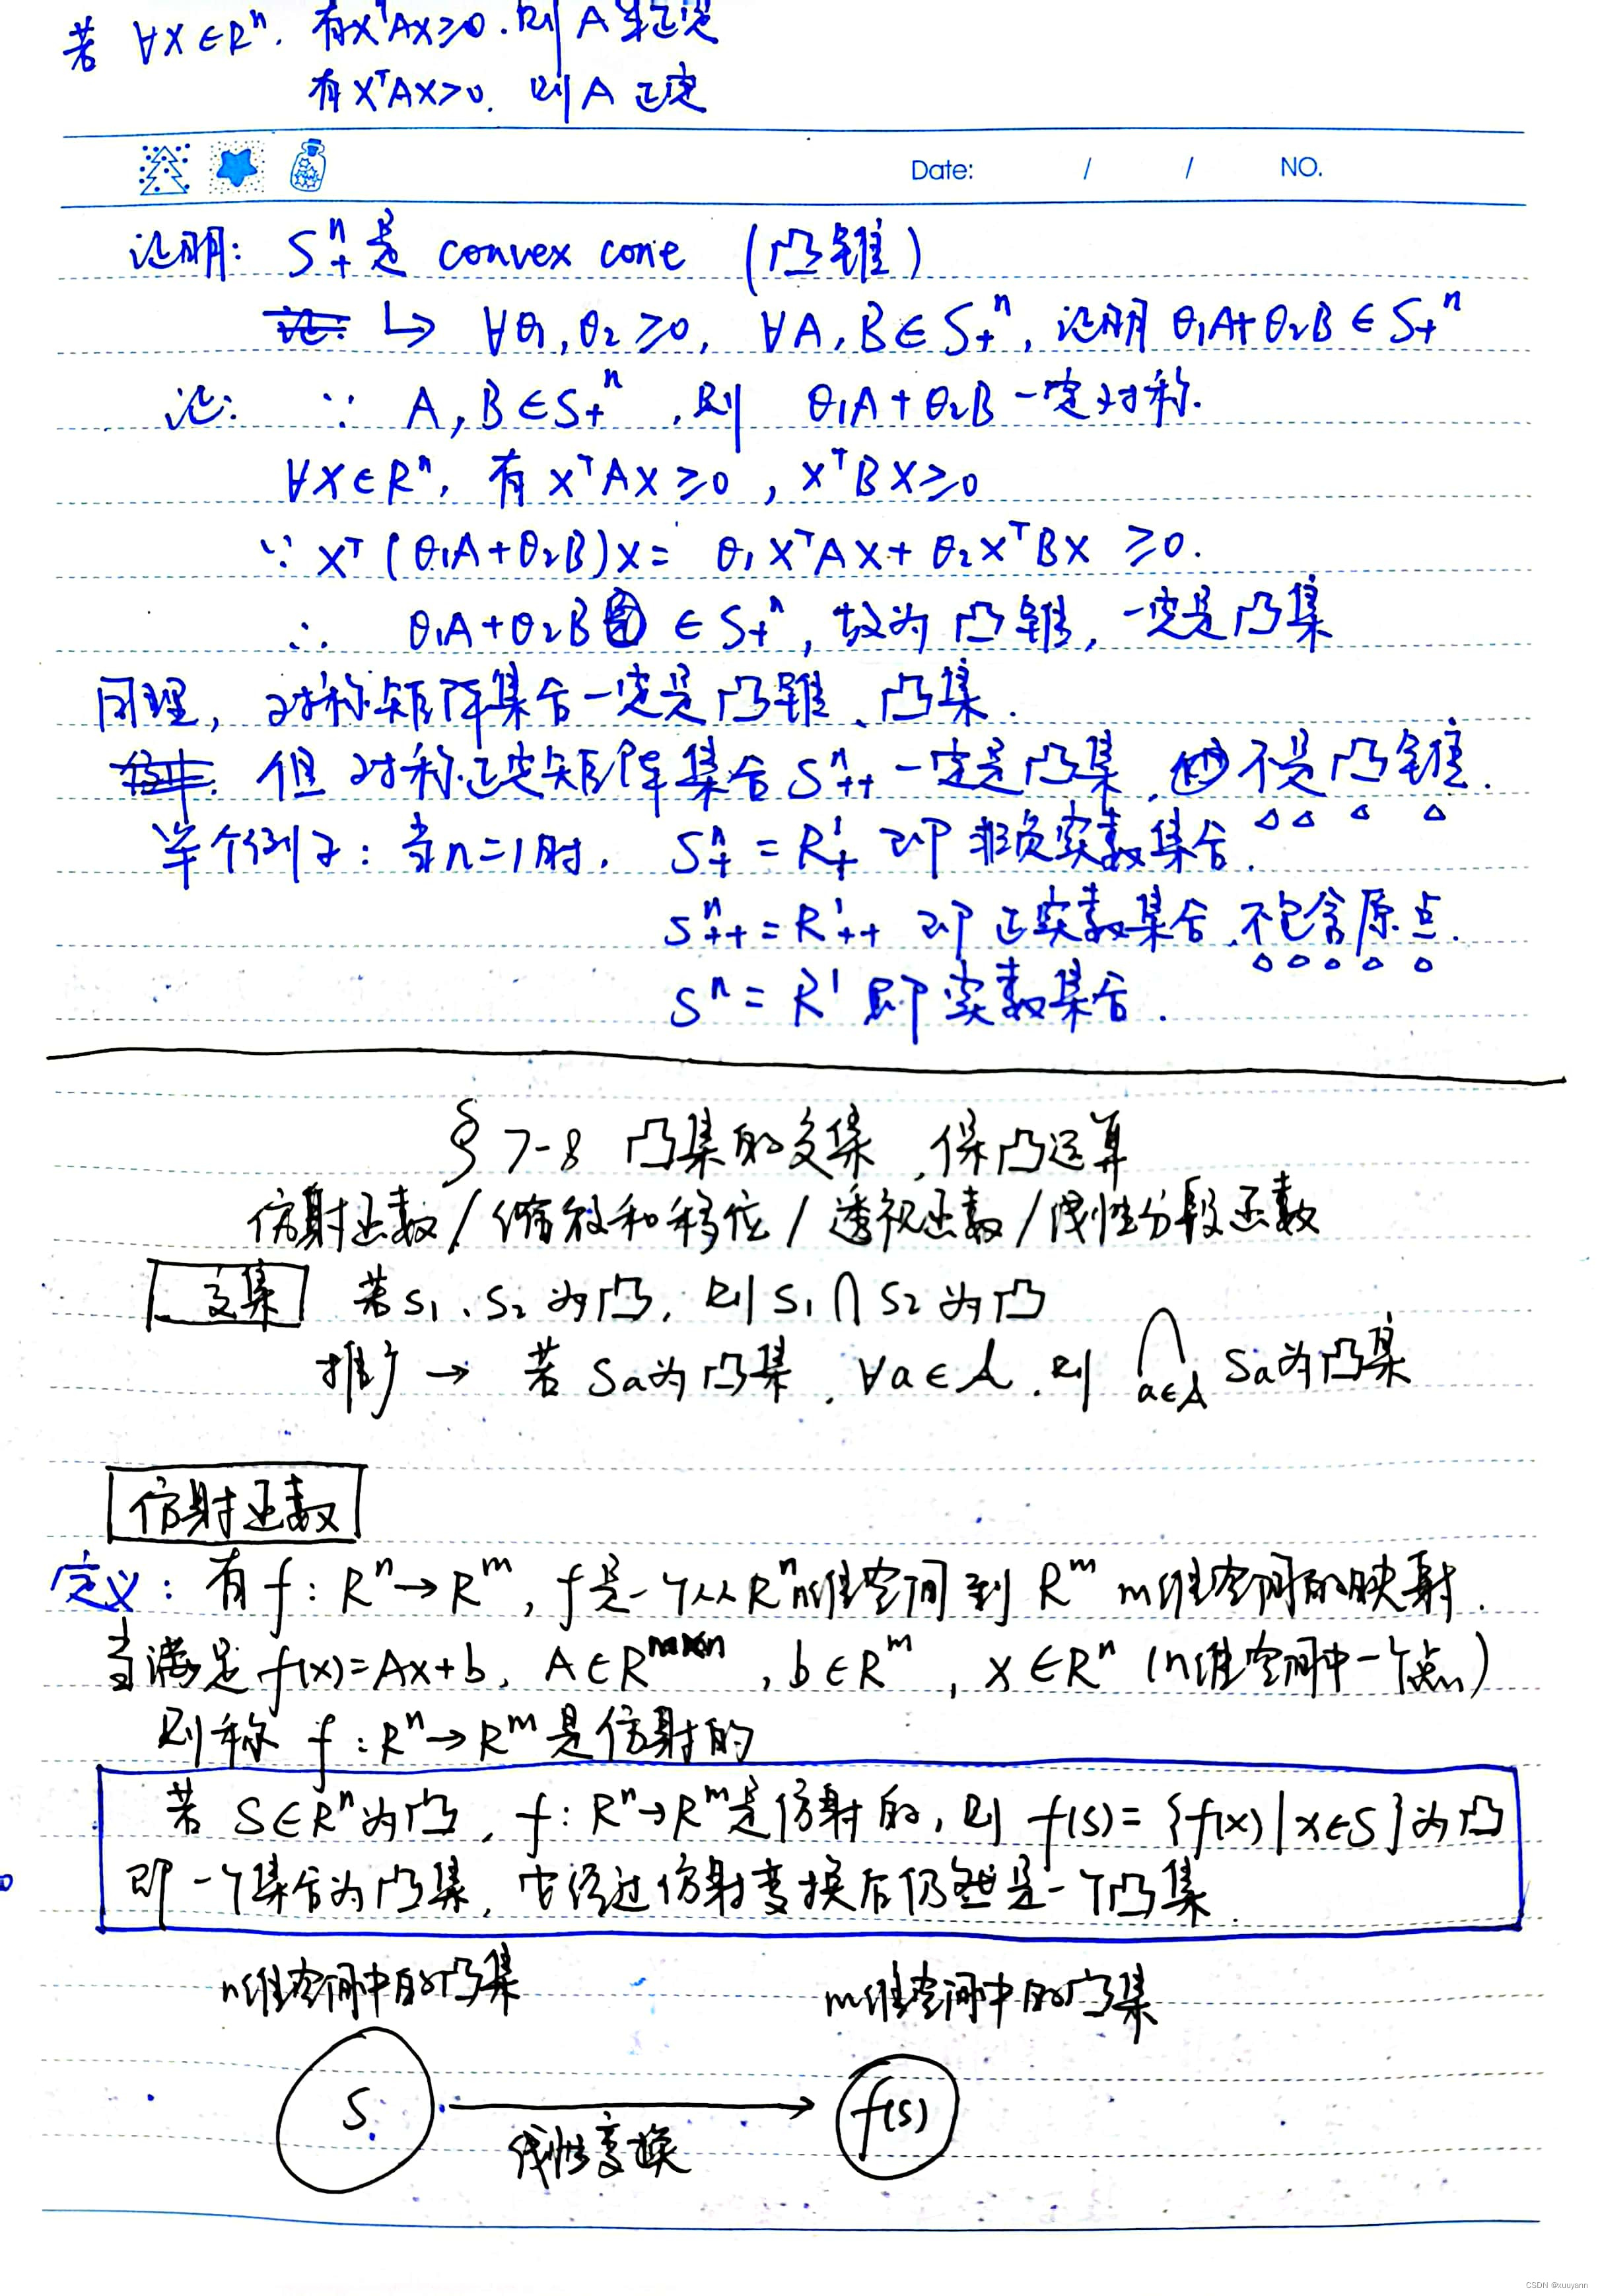 若 ∀X∈Rⁿ. 有XᵀAX≥0.则A半正定
有XᵀAX>0. 则A正定
Date: / / NO.
证明: S₊ⁿ是 convex cone (凸锥)
↳ ∀θ₁,θ₂≥0, ∀A,B∈S₊ⁿ, 证明 θ₁A+θ₂B∈S₊ⁿ
证: ∵ A,B∈S₊ⁿ ,则 θ₁A+θ₂B一定对称.
∀X∈Rⁿ, 有 XᵀAX≥0, XᵀBX≥0
∵ Xᵀ(θ₁A+θ₂B)X= θ₁XᵀAX+θ₂XᵀBX ≥0.
∴ θ₁A+θ₂B ∈S₊ⁿ, 故为凸锥, 一定是凸集
同理, 对称矩阵集合一定是凸锥、凸集.
但 对称正定矩阵集合 S₊₊ⁿ 一定是凸集, 不是凸锥.
举个例子: 当n=1时, S₊ⁿ=R₊¹ 即 非负实数集合.
S₊₊ⁿ=R₊₊¹ 即 正实数集合,不包含原点.
Sⁿ=R¹ 即 实数集合.
§ 7-8 凸集的交集,保凸运算
仿射函数/缩放和移位/透视函数/线性分段函数
交集 若S₁、S₂为凸, 则S₁∩S₂为凸
推广 → 若 Sa为凸集, ∀a∈A, 则 ∩a∈A Sa为凸集
仿射函数
定义: 有 f: Rⁿ→Rᵐ, f是一个从Rⁿ n维空间到 Rᵐ m维空间的映射.
当满足 f(x)=Ax+b, A∈Rᵐˣⁿ, b∈Rᵐ, X∈Rⁿ (n维空间中一个点)
则称 f:Rⁿ→Rᵐ是仿射的
若 S∈Rⁿ为凸, f: Rⁿ→Rᵐ是仿射的, 则 f(S)={f(x)|x∈S}为凸
即一个集合为凸集, 它经过仿射变换后仍然是一个凸集.
n维空间中的凸集 m维空间中的凸集
S f(S)
线性变换
CSDN @xuuyann